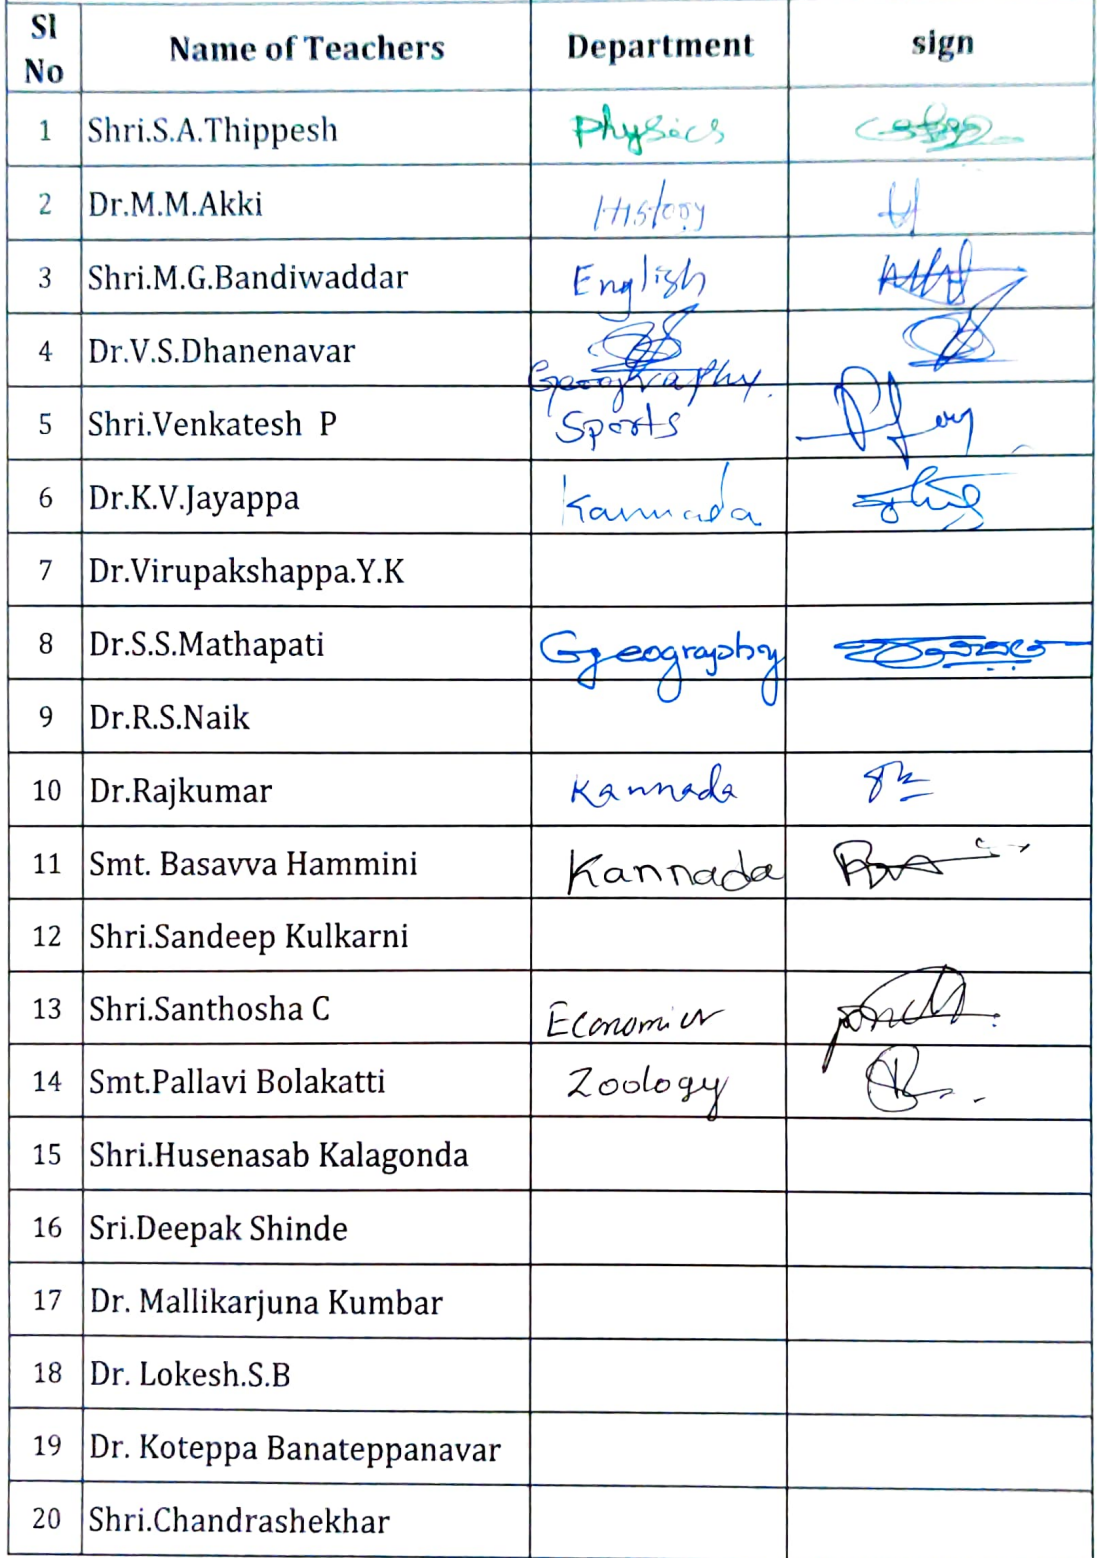 Sl No Name of Teachers Department sign
1 Shri.S.A.Thippesh Physics
2 Dr.M.M.Akki History
3 Shri.M.G.Bandiwaddar English
4 Dr.V.S.Dhanenavar Geography.
5 Shri.Venkatesh P Sports
6 Dr.K.V.Jayappa Kannada
7 Dr.Virupakshappa.Y.K
8 Dr.S.S.Mathapati Geography
9 Dr.R.S.Naik
10 Dr.Rajkumar Kannada
11 Smt. Basavva Hammini Kannada
12 Shri.Sandeep Kulkarni
13 Shri.Santhosha C Economics
14 Smt.Pallavi Bolakatti Zoology
15 Shri.Husenasab Kalagonda
16 Sri.Deepak Shinde
17 Dr. Mallikarjuna Kumbar
18 Dr. Lokesh.S.B
19 Dr. Koteppa Banateppanavar
20 Shri.Chandrashekhar